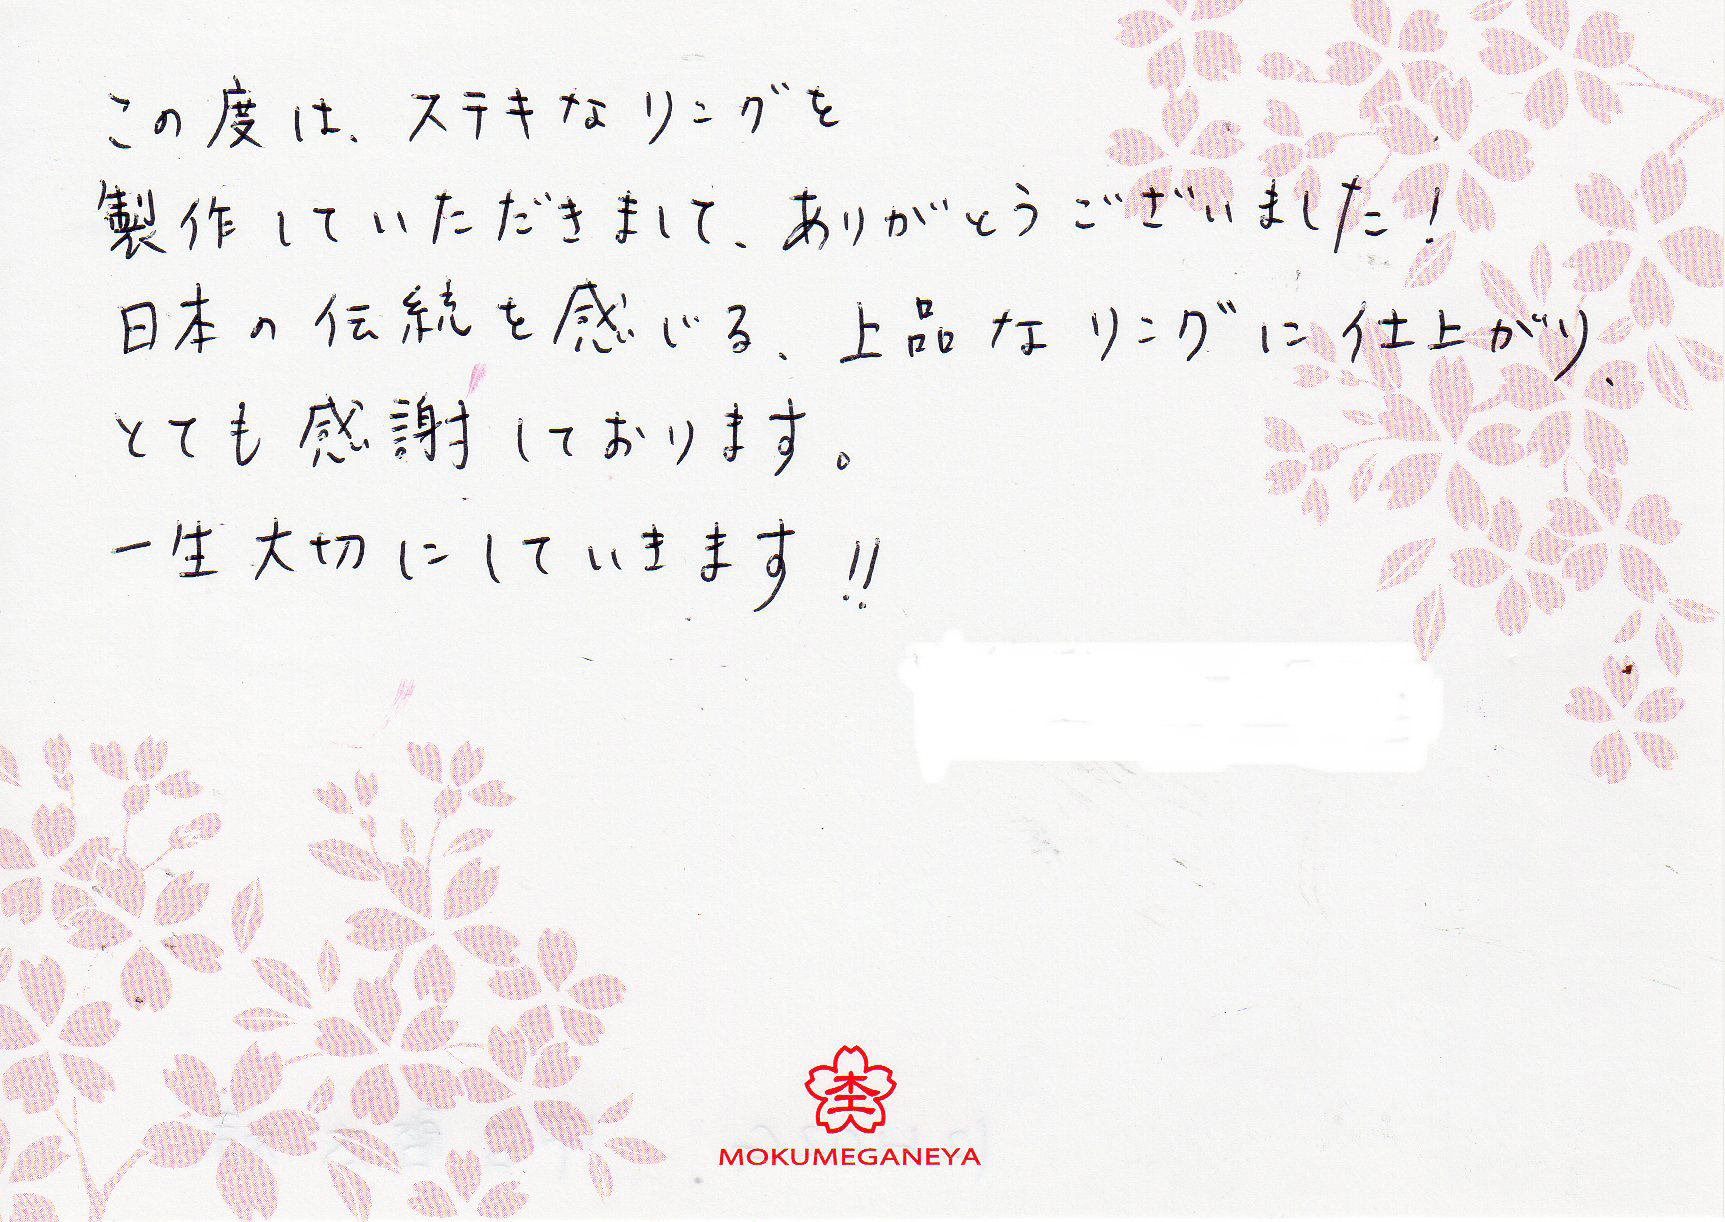 この度は、ステキなリングを
製作していただきまして、ありがとうございました!
日本の伝統を感じる、上品なリングに仕上がり、
とても感謝しております。
一生大切にしていきます!!
MOKUMEGANEYA